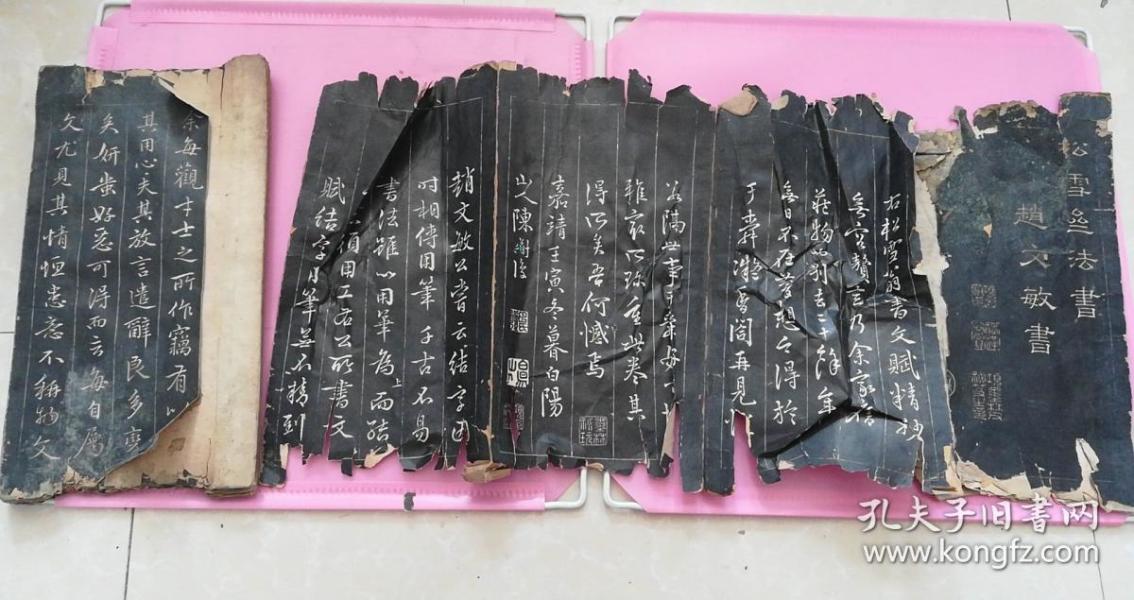 松雪齋法書
趙文敏書
右松雪翁書文賦精妙
莊物以別去二十餘年
無日不在夢想今得於
于舜瀔雪閣再見
若隔世事于舜好古
雅家所珍重此卷其
得所矣吾何憾焉
嘉靖壬寅冬暮白陽
山人陳
趙文敏公嘗云結字因
時相傳用筆千古不易
書法雖以用筆為上而結
須用工右公所書文
賦結字用筆無不精到
余每觀才士之所作竊有以
其用心夫其放言遣辭良多變
矣妍蚩好惡可得而言每自屬
文尤見其情恒患意不稱物文
孔夫子旧书网
www.kongfz.com